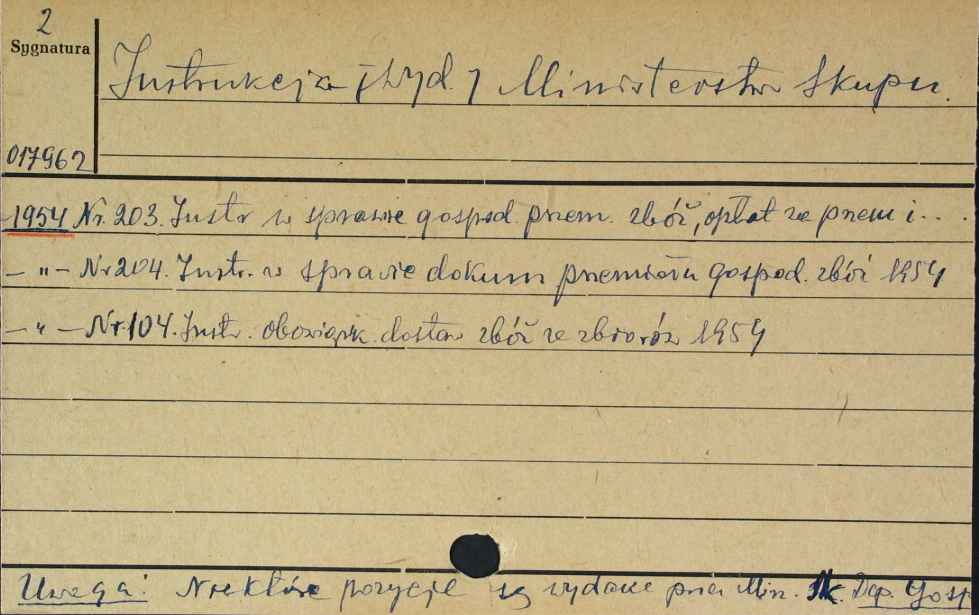 2
Sygnatura
Instrukcja [Wyd.] Ministerstwo Skupu.
017962
1954 Nr. 203. Instr w sprawie gospod. przem. zbóż, opłat za przem i...
– " – Nr 204. Instr. w sprawie dokum przemiału gospod. zbóż 1954
– " – Nr. 104. Instr. obowiązk. dostaw zbóż ze zbiorów 1954
Uwaga: Niektóre pozycje są wydane przez Min. Sk. Dep. Gosp